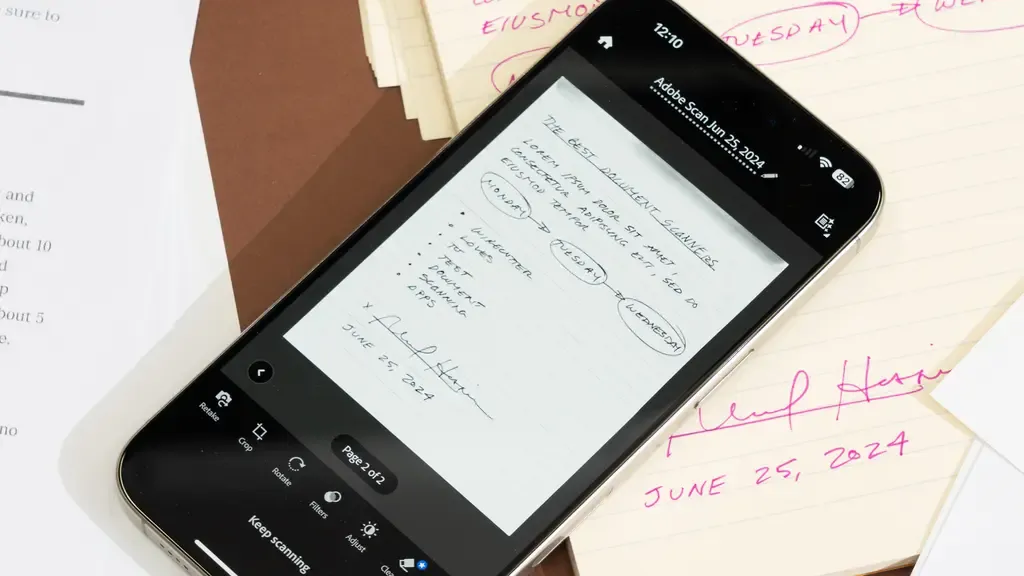 sure to
and
ken,
bout 10
d
p
bout 5
e.
no
EIUSMO
TUESDAY
12:10
82
Adobe Scan Jun 25, 2024
THE BEST DOCUMENT SCANNERS
LOREM IPSUM DOLOR SIT AMET,
CONSECTETUR ADIPISCING ELIT, SED DO
EIUSMOD TEMPOR
MONDAY
TUESDAY
WEDNESDAY
• WIRECUTTER
• LOVES
• TO
• TEST
• DOCUMENT
• SCANNING
• APPS
X
JUNE 25, 2024
Page 2 of 2
Retake
Crop
Rotate
Filters
Adjust
Clea
Keep scanning
JUNE 25, 2024